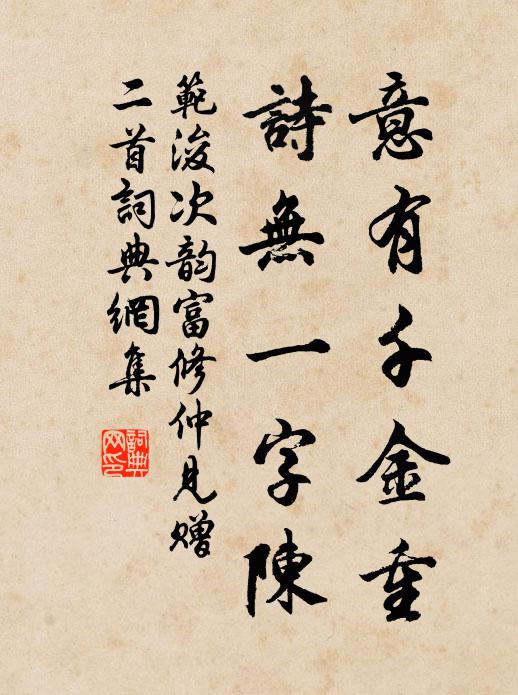 意有千金重
詩無一字陳
範浚次韵富修仲見贈
二首詞典網集
詞典
网印